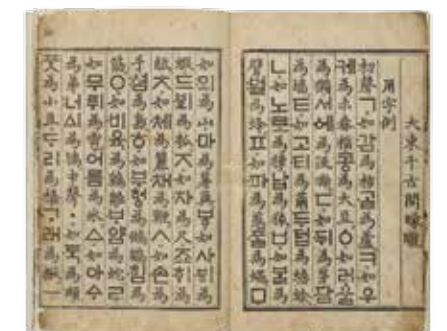 大東千古開矇矓
用字例
初聲ㄱ如감爲柿ᄀᆞᆯ爲蘆ㅋ如우
케爲未舂稻콩爲大豆ㆁ如러울
爲獺서에爲流凘ㄷ如뒤爲茅담
爲墻ㅌ如고티爲繭두텁爲蟾蜍
ㄴ如노로爲獐납爲猿ㅂ如ᄇᆞᆯ爲
臂벌爲蜂ㅍ如파爲葱ᄑᆞᆯ爲蠅ㅁ
如뫼爲山마爲薯藇ㅸ如사ᄫᅵ爲
蝦드ᄫᅴ爲瓠ㅈ如자爲尺죠ᄒᆡ爲
紙ㅊ如체爲籭채爲鞭ㅅ如손爲
手셤爲島ㅎ如부혀ᇰ爲鵂鶹힘爲
筋ㅇ如비육爲鷄雛ᄇᆞ얌爲蛇ㄹ
如무뤼爲雹어름爲氷ㅿ如아ᅀᆞ
爲弟너ᅀᅵ爲鴇中聲ㆍ如ᄐᆞᆨ爲頤
ᄑᆞᆺ爲小豆ᄃᆞ리爲橋ᄀᆞ래爲楸ㅡ